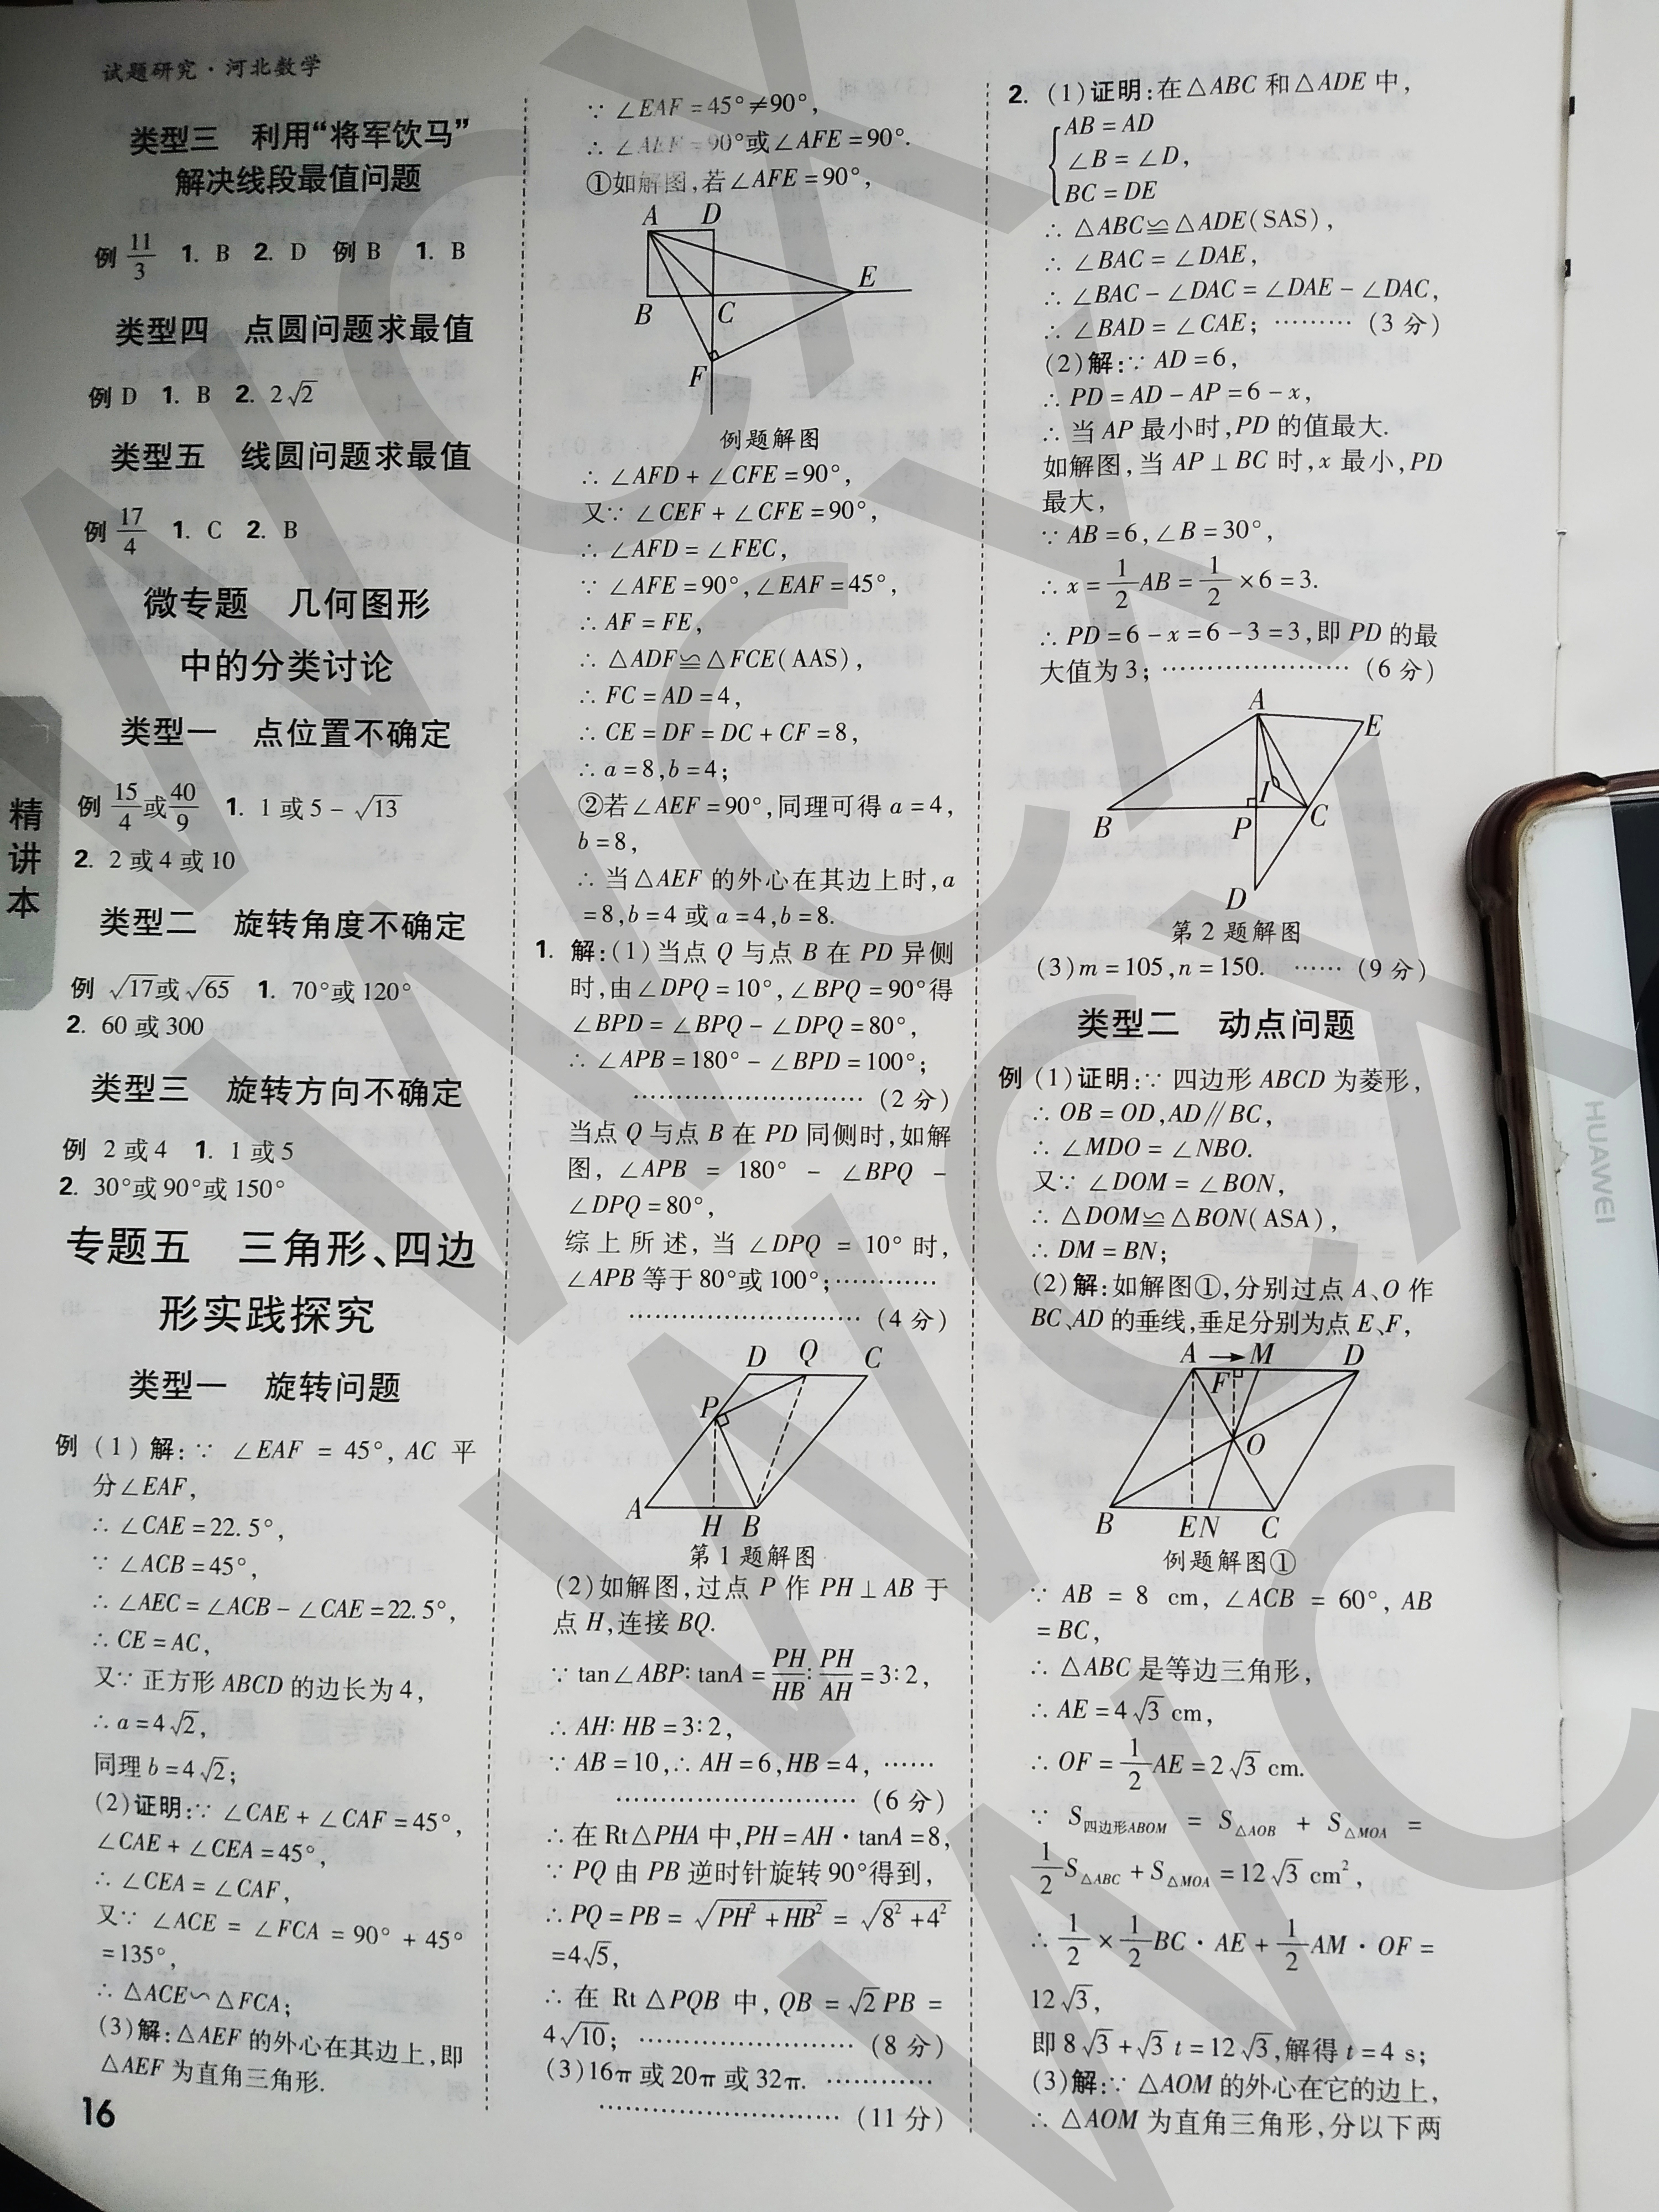 试题研究·河北数学
类型三 利用“将军饮马”
解决线段最值问题
例 11/3 1. B 2. D 例 B 1. B
类型四 点圆问题求最值
例 D 1. B 2. 2√2
类型五 线圆问题求最值
例 17/4 1. C 2. B
微专题 几何图形
中的分类讨论
类型一 点位置不确定
例 15/4或40/9 1. 1或5-√13
2. 2或4或10
类型二 旋转角度不确定
例 √17或√65 1. 70°或120°
2. 60或300
类型三 旋转方向不确定
例 2或4 1. 1或5
2. 30°或90°或150°
专题五 三角形、四边
形实践探究
类型一 旋转问题
例 (1)解:∵ ∠EAF = 45°, AC 平
分∠EAF,
∴ ∠CAE=22.5°,
∵ ∠ACB=45°,
∴ ∠AEC=∠ACB-∠CAE=22.5°,
∴ CE=AC,
又∵正方形ABCD的边长为4,
∴ a=4√2,
同理b=4√2;
(2)证明:∵ ∠CAE+∠CAF=45°,
∠CAE+∠CEA=45°,
∴ ∠CEA=∠CAF,
又∵ ∠ACE = ∠FCA = 90° + 45°
=135°,
∴ △ACE∽△FCA;
(3)解:△AEF的外心在其边上,即
△AEF为直角三角形.
16
精讲本
∵ ∠EAF=45°≠90°,
∴ ∠AEF=90°或∠AFE=90°.
①如解图,若∠AFE=90°,
A D
E
B C
F
例题解图
∴ ∠AFD+∠CFE=90°,
又∵ ∠CEF+∠CFE=90°,
∴ ∠AFD=∠FEC,
∵ ∠AFE=90°,∠EAF=45°,
∴ AF=FE,
∴ △ADF≌△FCE(AAS),
∴ FC=AD=4,
∴ CE=DF=DC+CF=8,
∴ a=8,b=4;
②若∠AEF=90°,同理可得a=4,
b=8,
∴当△AEF的外心在其边上时,a
=8,b=4或a=4,b=8.
1. 解:(1)当点Q与点B在PD异侧
时,由∠DPQ=10°,∠BPQ=90°得
∠BPD=∠BPQ-∠DPQ=80°,
∴ ∠APB=180°-∠BPD=100°;
………………………(2分)
当点Q与点B在PD同侧时,如解
图, ∠APB = 180° - ∠BPQ -
∠DPQ=80°,
综上所述,当∠DPQ = 10°时,
∠APB等于80°或100°;…………
………………………(4分)
D Q C
P
A H B
第1题解图
(2)如解图,过点P作PH⊥AB于
点H,连接BQ.
∵ tan∠ABP∶tanA=PH/HB∶PH/AH=3∶2,
∴ AH∶HB=3∶2,
∵ AB=10,∴ AH=6,HB=4, ……
………………………(6分)
∴在Rt△PHA中,PH=AH·tanA=8,
∵ PQ由PB逆时针旋转90°得到,
∴ PQ=PB=√(PH²+HB²)=√(8²+4²)
=4√5,
∴在Rt△PQB中, QB=√2PB=
4√10; ……………………(8分)
(3)16π或20π或32π. …………
………………………(11分)
2. (1)证明:在△ABC和△ADE中,
AB=AD
∠B=∠D,
BC=DE
∴ △ABC≌△ADE(SAS),
∴ ∠BAC=∠DAE,
∴ ∠BAC-∠DAC=∠DAE-∠DAC,
∴ ∠BAD=∠CAE; ………(3分)
(2)解:∵ AD=6,
∴ PD=AD-AP=6-x,
∴当AP最小时,PD的值最大.
如解图,当AP⊥BC时,x最小,PD
最大,
∵ AB=6,∠B=30°,
∴ x=1/2AB=1/2×6=3.
∴ PD=6-x=6-3=3,即PD的最
大值为3; …………………(6分)
A E
I
B P C
D
第2题解图
(3)m=105,n=150. ……(9分)
类型二 动点问题
例 (1)证明:∵四边形ABCD为菱形,
∴ OB=OD,AD∥BC,
∴ ∠MDO=∠NBO.
又∵ ∠DOM=∠BON,
∴ △DOM≌△BON(ASA),
∴ DM=BN;
(2)解:如解图①,分别过点A、O作
BC、AD的垂线,垂足分别为点E、F,
A→M D
F
O
B E N C
例题解图①
∵ AB = 8 cm, ∠ACB = 60°, AB
=BC,
∴ △ABC是等边三角形,
∴ AE=4√3 cm,
∴ OF=1/2AE=2√3 cm.
∵ S四边形ABOM = S△AOB + S△MOA =
1/2S△ABC+S△MOA=12√3 cm²,
∴ 1/2×1/2BC·AE+1/2AM·OF=
12√3,
即8√3+√3t=12√3,解得t=4 s;
(3)解:∵ △AOM的外心在它的边上,
∴ △AOM为直角三角形,分以下两
HUAWEI
WCYX